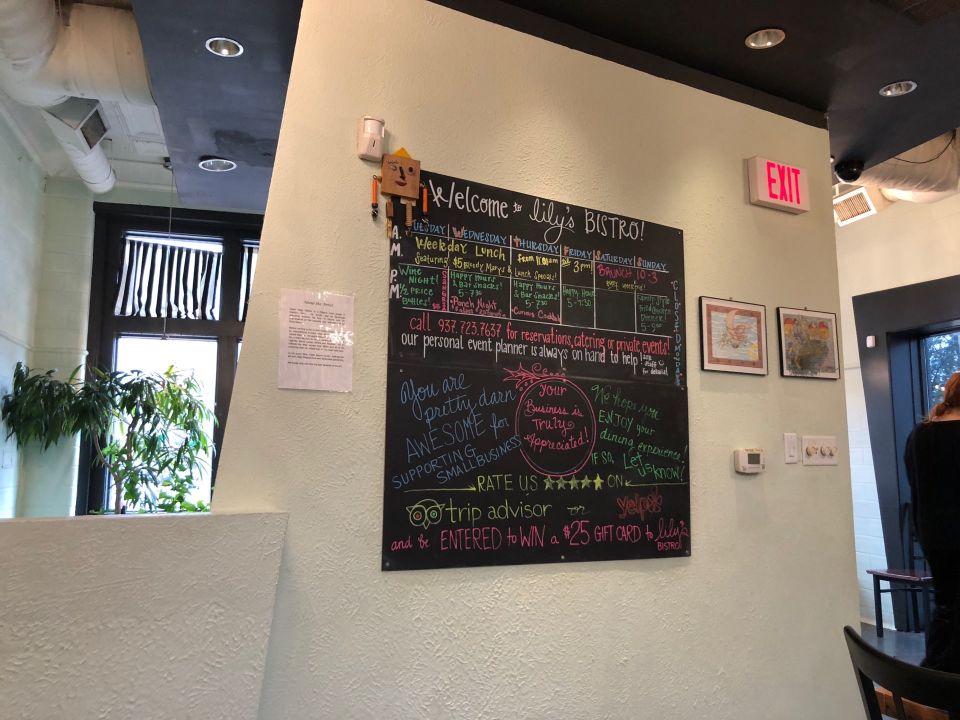 Welcome to lily's BISTRO!
TUESDAY WEDNESDAY THURSDAY FRIDAY SATURDAY SUNDAY
A.M.
Weekday Lunch from 11:00am til 3pm
featuring $5 Bloody Marys & Lunch Specials!
BRUNCH 10-3
every weekend!
P.M.
Wine NIGHT! 1/2 PRICE Bottles!
Happy Hours & Bar Snacks! 5-7:30
Punch Night
Happy Hours & Bar Snacks! 5-7:30
Curious Cocktails
Happy Hour 5-7:30
Family Style Fried Chicken Dinner! 5-9:00
CLOSED MONDAY
call 937.723.7637 for reservations, catering or private events!
our personal event planner is always on hand to help!
ask staff for details!
You are
pretty darn
AWESOME for
SUPPORTING
SMALL BUSINESS
Your
Business is
Truly
Appreciated!
We hope you
ENJOY your
dining experience!
IF SO, Let
us know!
RATE US ★★★★★ ON
trip advisor or yelp
and be ENTERED to WIN a $25 GIFT CARD to lily's BISTRO!
EXIT